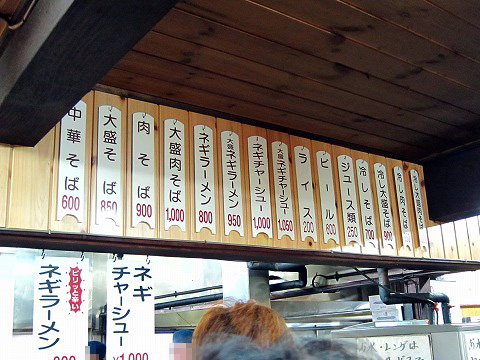 中華そば
600
大盛そば
850
肉そば
900
大盛肉そば
1,000
ネギラーメン
800
大盛ネギラーメン
950
ネギチャーシュー
1,000
大盛ネギチャーシュー
1,050
ライス
200
ビール
600
ジュース類
250
冷しそば
700
冷し大盛そば
冷し肉そば
冷し大盛肉そば
ピリッと辛い
ネギラーメン
ネギ
チャーシュー
¥1,000
お水・レンゲは